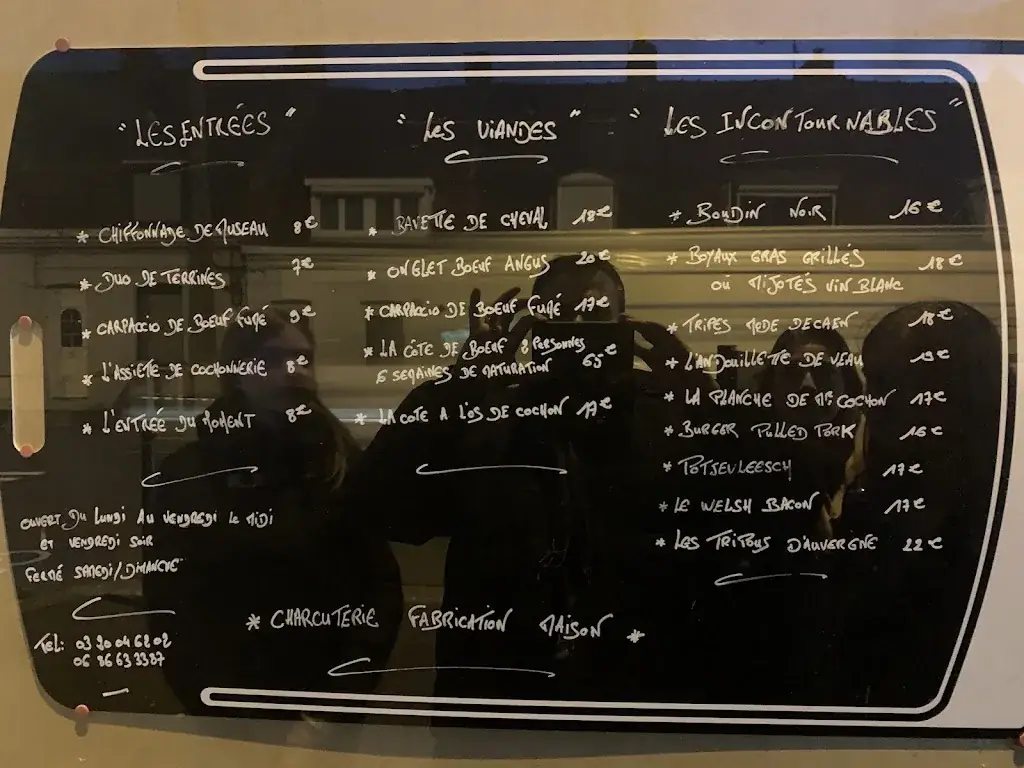 " LES ENTRÉES "
* CHIFFONNADE DE MUSEAU 8€
* DUO DE TERRINES 7€
* CARPACCIO DE BOEUF FUMÉ 9€
* L'ASSIETTE DE COCHONNERIE 8€
* L'ENTRÉE DU MOMENT 8€
OUVERT DU LUNDI AU VENDREDI LE MIDI
ET VENDREDI SOIR
FERMÉ SAMEDI/DIMANCHE
TEL: 03 20 04 62 02
06 86 63 33 87
" LES VIANDES "
* BAVETTE DE CHEVAL 18€
* ONGLET BOEUF ANGUS 20€
* CARPACCIO DE BOEUF FUMÉ 17€
* LA CÔTE DE BOEUF 2 PERSONNES
6 SEMAINES DE MATURATION 65€
* LA COTE A L'OS DE COCHON 17€
" LES INCONTOURNABLES "
* BOUDIN NOIR 16€
* BOYAUX GRAS GRILLÉS 18€
OU MIJOTÉS VIN BLANC
* TRIPES MODE DE CAEN 18€
* L'ANDOUILLETTE DE VEAU 19€
* LA PLANCHE DE Mr COCHON 17€
* BURGER PULLED PORK 16€
* POTJEVLEESCH 17€
* LE WELSH BACON 17€
* LES TRIPOUS D'AUVERGNE 22€
* CHARCUTERIE FABRICATION MAISON *